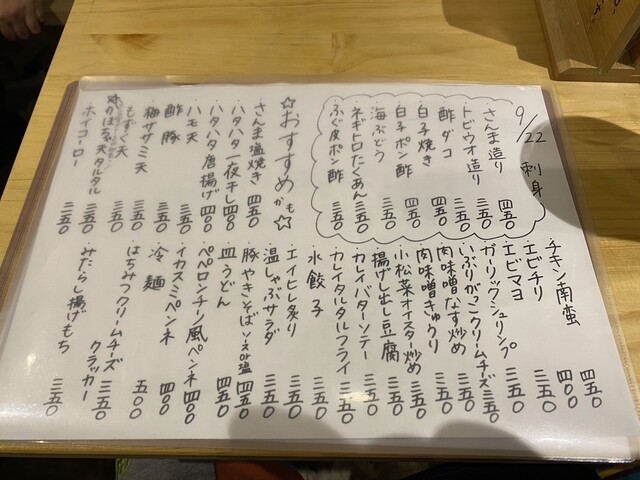 9/22 刺身
さんま造り 四五〇
トビウオ造り 三五〇
酢ダコ 三五〇
白子焼き 四五〇
白子ポン酢 四五〇
海ぶどう 三五〇
ネギトロたくあん 三五〇
ふぐ皮ポン酢 三五〇
☆おすすめかも☆
さんま塩焼き 四五〇
ハタハタ一夜干し 四〇〇
ハタハタ唐揚げ 四〇〇
ハモ天 四五〇
酢豚 三五〇
梅ササミ天 三五〇
もずく天 三五〇
天タルタル 三五〇
ホイコーロー 三五〇
チキン南蛮 四五〇
エビチリ 四〇〇
エビマヨ 三五〇
ガーリックシュリンプ 三五〇
いぶりがっこクリームチーズ 三五〇
肉味噌なす炒め 三五〇
肉味噌きゅうり 三五〇
小松菜オイスター炒め 三五〇
揚げ出し豆腐 三五〇
カレイバターソテー 三五〇
カレイタルタルフライ 三五〇
水餃子 三五〇
エイヒレ炙り 三五〇
温しゃぶサラダ 三五〇
豚やきそばソースor塩 三五〇
皿うどん 四五〇
ペペロンチーノ風ペンネ 四〇〇
イカスミペンネ 四〇〇
冷麺 五〇〇
はちみつクリームチーズクラッカー 三五〇
みたらし揚げもち 三五〇